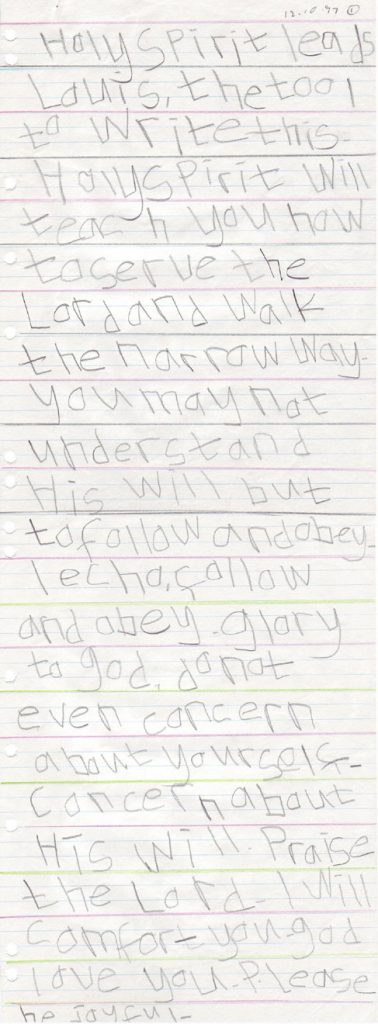 12.10.97 ①
Holy Spirit leads
Louis, the tool
to write this.
Holy Spirit Will
teach you how
to serve the
Lord and Walk
the narrow Way.
you may not
understand
His Will but
to follow and obey.
lecha, follow
and obey. glory
to god. do not
even concern
about yourself.
Concern about
His Will. Praise
the Lord. I Will
comfort you. god
love you. Please
be joyful.